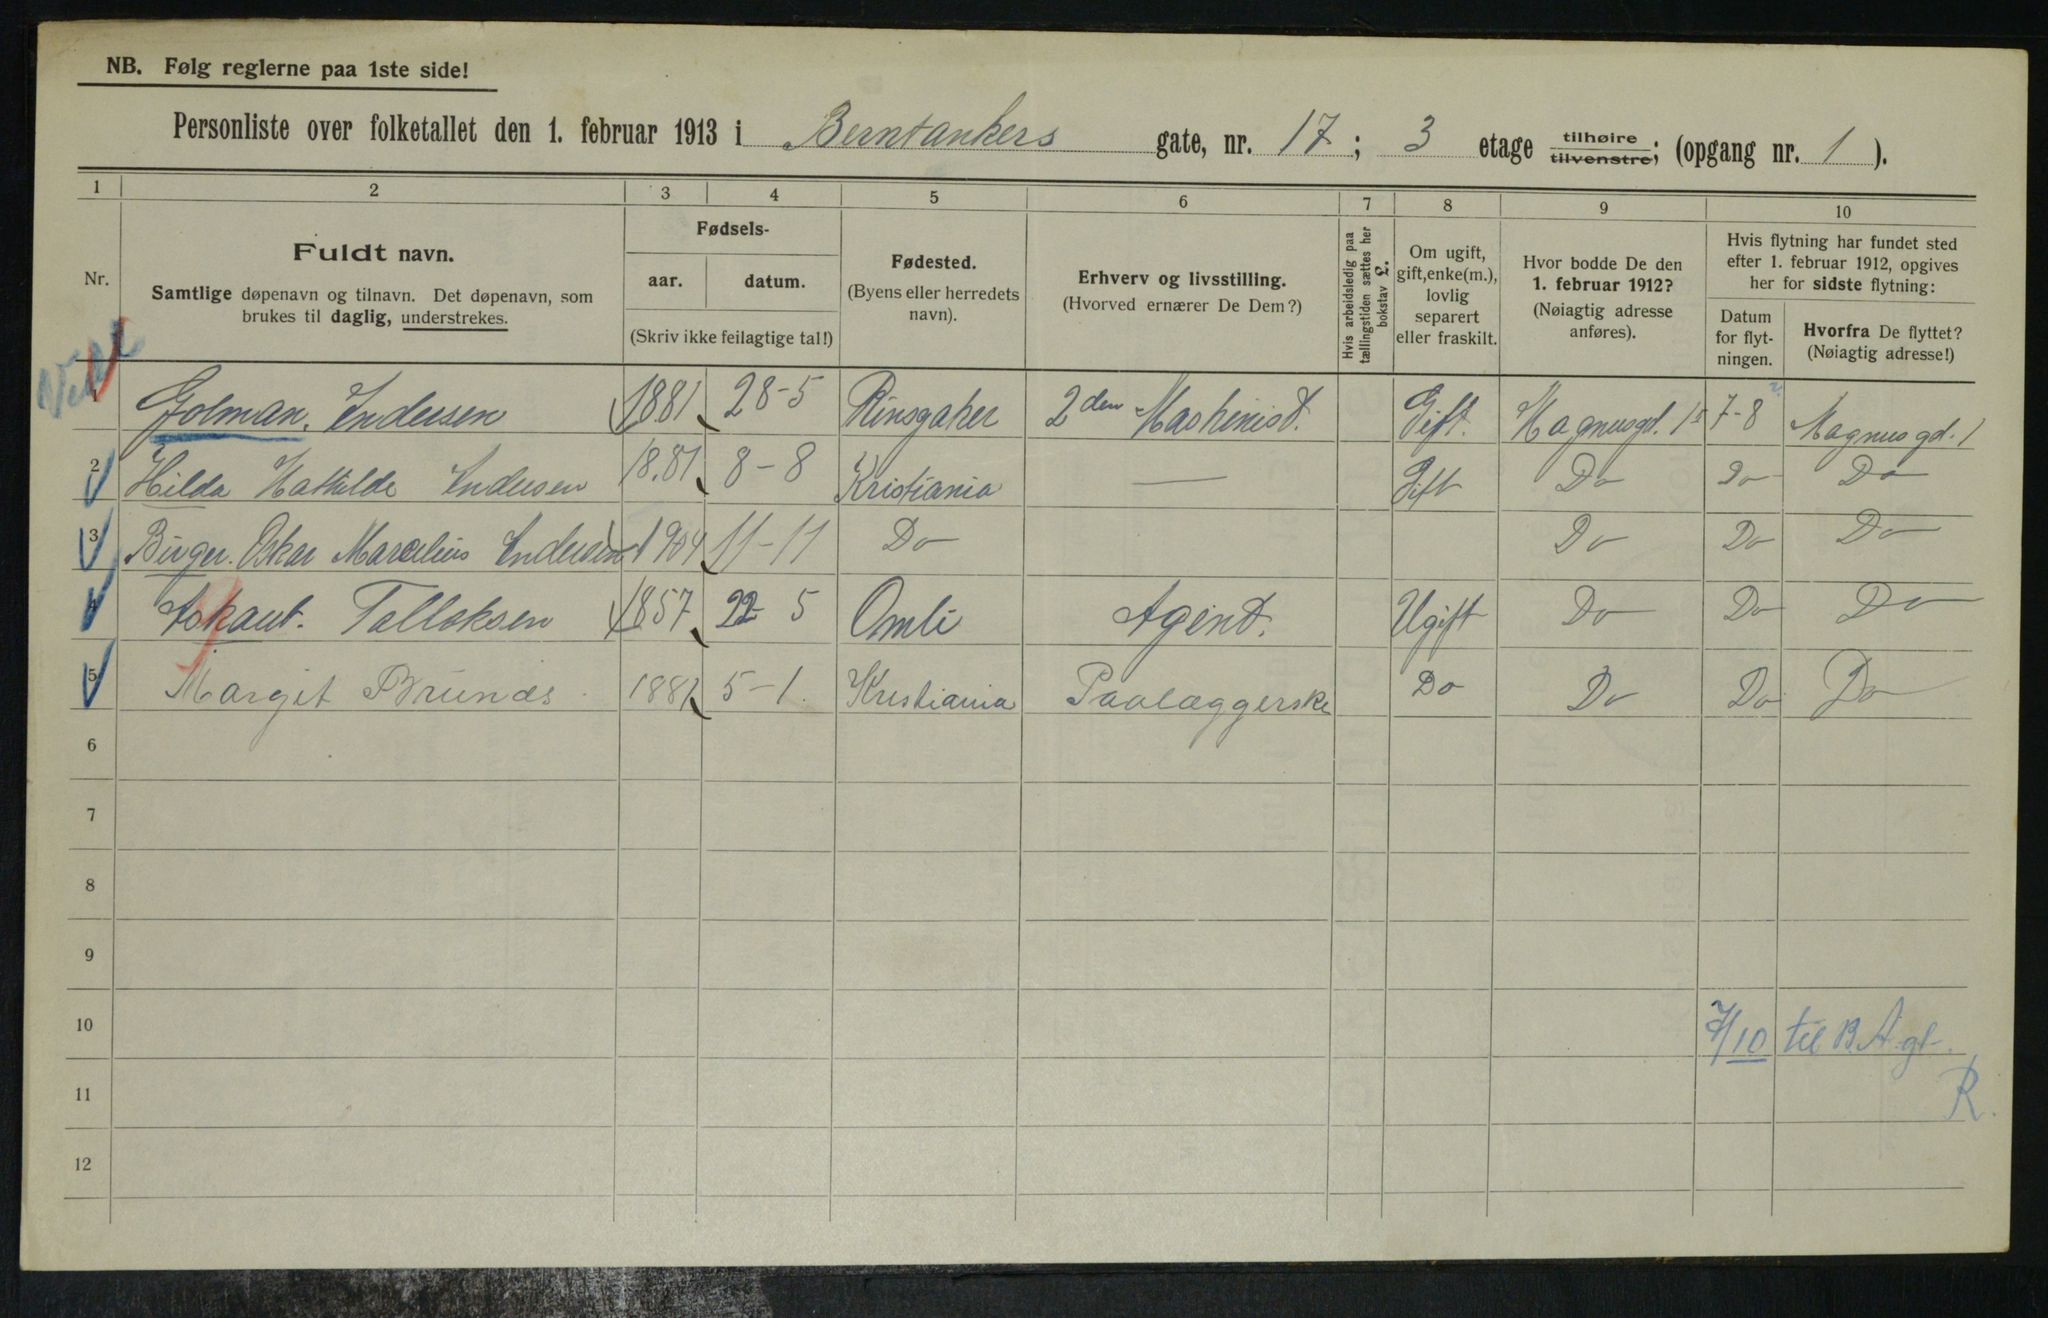 NB. Følg reglerne paa 1ste side!
Personliste over folketallet den 1. februar 1913 i Berntankers gate, nr. 17; 3 etage tilhøire tilvenstre; (opgang nr. 1).
1 2 3 4 5 6 7 8 9 10
Nr.
Fuldt navn.
Samtlige døpenavn og tilnavn. Det døpenavn, som
brukes til daglig, understrekes.
Fødsels-
aar. datum.
(Skriv ikke feilagtige tal!)
Fødested.
(Byens eller herredets
navn).
Erhverv og livsstilling.
(Hvorved ernærer De Dem?)
Hvis arbeidsledig paa
tællingstiden sættes her
bokstav £.
Om ugift,
gift, enke(m.),
lovlig
separert
eller fraskilt.
Hvor bodde De den
1. februar 1912?
(Nøiagtig adresse
anføres).
Hvis flytning har fundet sted
efter 1. februar 1912, opgives
her for sidste flytning:
Datum
for flyt-
ningen.
Hvorfra De flyttet?
(Nøiagtig adresse!)
1 Golman. Andersen 1881 28-5 Ringsaker 2den Maskinist. Gift. Magnusgd. 1 7-8 Magnusgd. 1
2 Hilda Mathilde Andersen 1881 8-8 Kristiania — Gift Do Do Do
3 Birger. Oskar Marcelius Andersen 1904 11-11 Do Do Do Do
4 Tolloksen 1857 22-5 Omli Agent. Ugift Do Do Do
5 Margit Brunæs 1881 5-1. Kristiania Paalæggerske Do Do Do Do
6
7
8
9
10 7/10 til B.A.gt.
11 R.
12